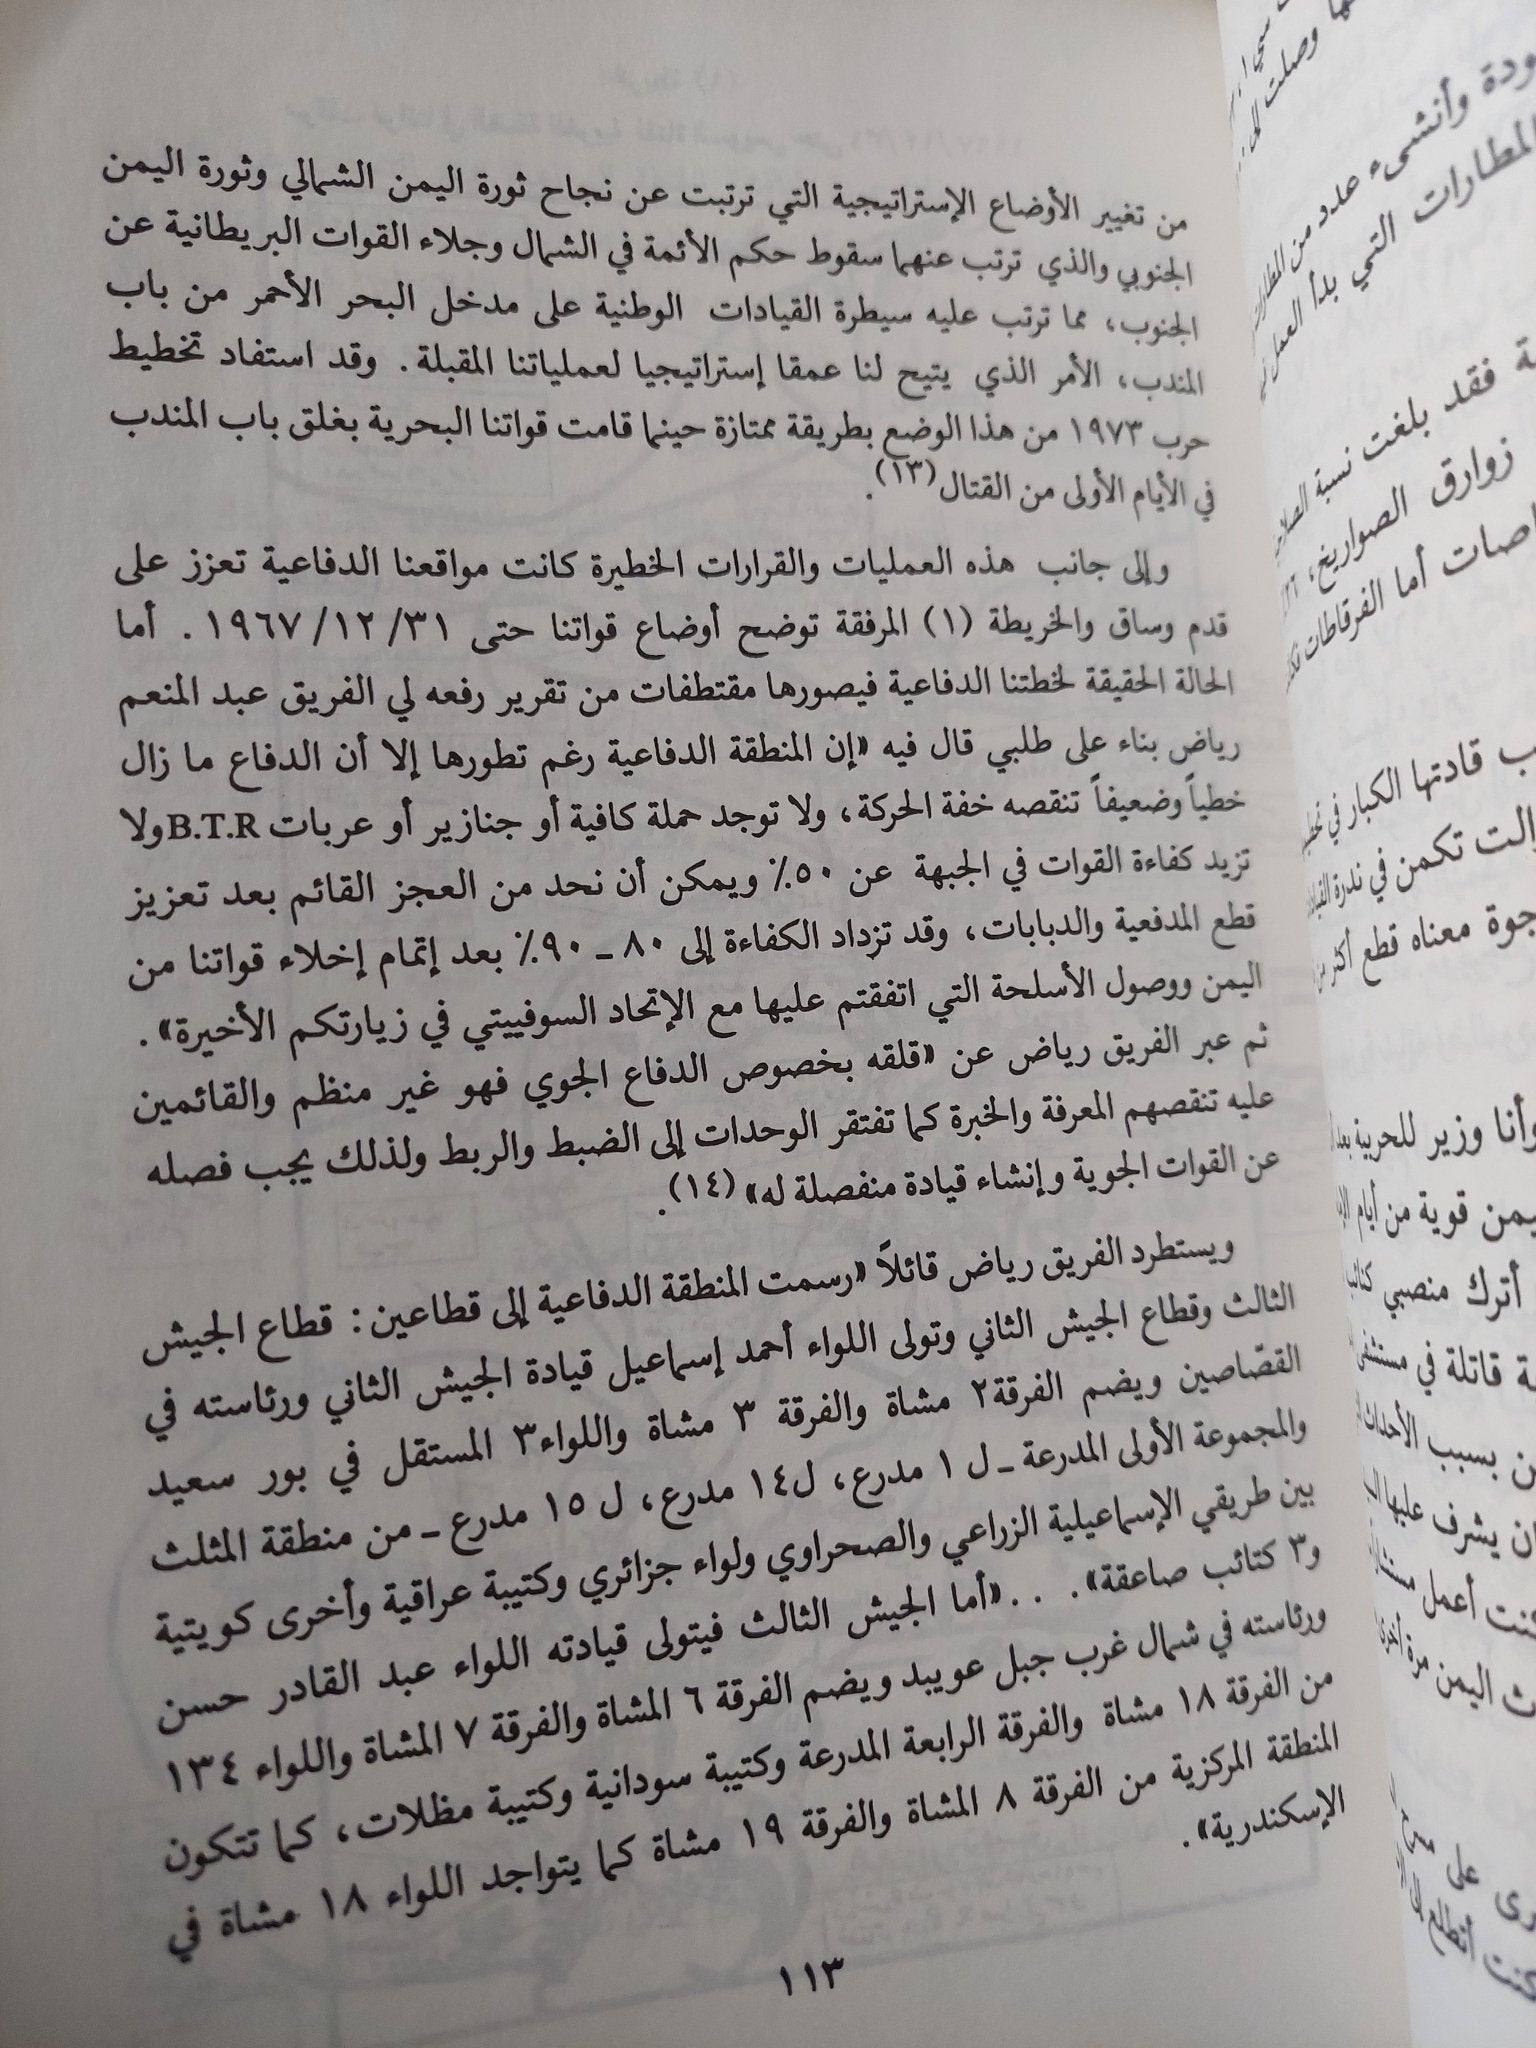 من تغيير الأوضاع الإستراتيجية التي ترتبت عن نجاح ثورة اليمن الشمالي وثورة اليمن
الجنوبي والذي ترتب عنهما سقوط حكم الأئمة في الشمال وجلاء القوات البريطانية عن
الجنوب، مما ترتب عليه سيطرة القيادات الوطنية على مدخل البحر الأحمر من باب
المندب، الأمر الذي يتيح لنا عمقا إستراتيجيا لعملياتنا المقبلة. وقد استفاد تخطيط
حرب ١٩٧٣ من هذا الوضع بطريقة ممتازة حينما قامت قواتنا البحرية بغلق باب المندب
في الأيام الأولى من القتال(١٣).
وإلى جانب هذه العمليات والقرارات الخطيرة كانت مواقعنا الدفاعية تعزز على
قدم وساق والخريطة (١) المرفقة توضح أوضاع قواتنا حتى ١٩٦٧/١٢/٣١. أما
الحالة الحقيقة لخطتنا الدفاعية فيصورها مقتطفات من تقرير رفعه لي الفريق عبد المنعم
رياض بناء على طلبي قال فيه «إن المنطقة الدفاعية رغم تطورها إلا أن الدفاع ما زال
خطياً وضعيفاً تنقصه خفة الحركة، ولا توجد حملة كافية أو جنازير أو عربات B.T.R ولا
تزيد كفاءة القوات في الجبهة عن ٥٠٪ ويمكن أن نحد من العجز القائم بعد تعزيز
قطع المدفعية والدبابات، وقد تزداد الكفاءة إلى ٨٠ ـ ٩٠٪ بعد إتمام إخلاء قواتنا من
اليمن ووصول الأسلحة التي اتفقتم عليها مع الإتحاد السوفييتي في زيارتكم الأخيرة».
ثم عبر الفريق رياض عن «قلقه بخصوص الدفاع الجوي فهو غير منظم والقائمين
عليه تنقصهم المعرفة والخبرة كما تفتقر الوحدات إلى الضبط والربط ولذلك يجب فصله
عن القوات الجوية وإنشاء قيادة منفصلة له» (١٤).
ويستطرد الفريق رياض قائلاً «رسمت المنطقة الدفاعية إلى قطاعين: قطاع الجيش
الثالث وقطاع الجيش الثاني وتولى اللواء أحمد إسماعيل قيادة الجيش الثاني ورئاسته في
القصّاصين ويضم الفرقة٢ مشاة والفرقة ٣ مشاة واللواء٣ المستقل في بور سعيد
والمجموعة الأولى المدرعة ـ ل ١ مدرع، ل١٤ مدرع، ل ١٥ مدرع ـ من منطقة المثلث
بين طريقي الإسماعيلية الزراعي والصحراوي ولواء جزائري وكتيبة عراقية وأخرى كويتية
و٣ كتائب صاعقة». . .«أما الجيش الثالث فيتولى قيادته اللواء عبد القادر حسن
ورئاسته في شمال غرب جبل عويبد ويضم الفرقة ٦ المشاة والفرقة ٧ المشاة واللواء ١٣٤
من الفرقة ١٨ مشاة والفرقة الرابعة المدرعة وكتيبة سودانية وكتيبة مظلات، كما تتكون
المنطقة المركزية من الفرقة ٨ المشاة والفرقة ١٩ مشاة كما يتواجد اللواء ١٨ مشاة في
الإسكندرية».
١١٣
وصلت
وأنشىء عدد من
المطارات التي بدأ العمل
فقد بلغت نسبة
زوارق الصواريخ،
أما الفرقاطات
قادتها الكبار في
تكمن في ندرة
معناه قطع أكثر
وأنا وزير للحربية
قوية من أيام
أترك منصبي
قاتلة في مستشفى
بسبب الأحداث
يشرف عليها
أعمل
اليمن مرة أخرى
على
أتطلع إلى